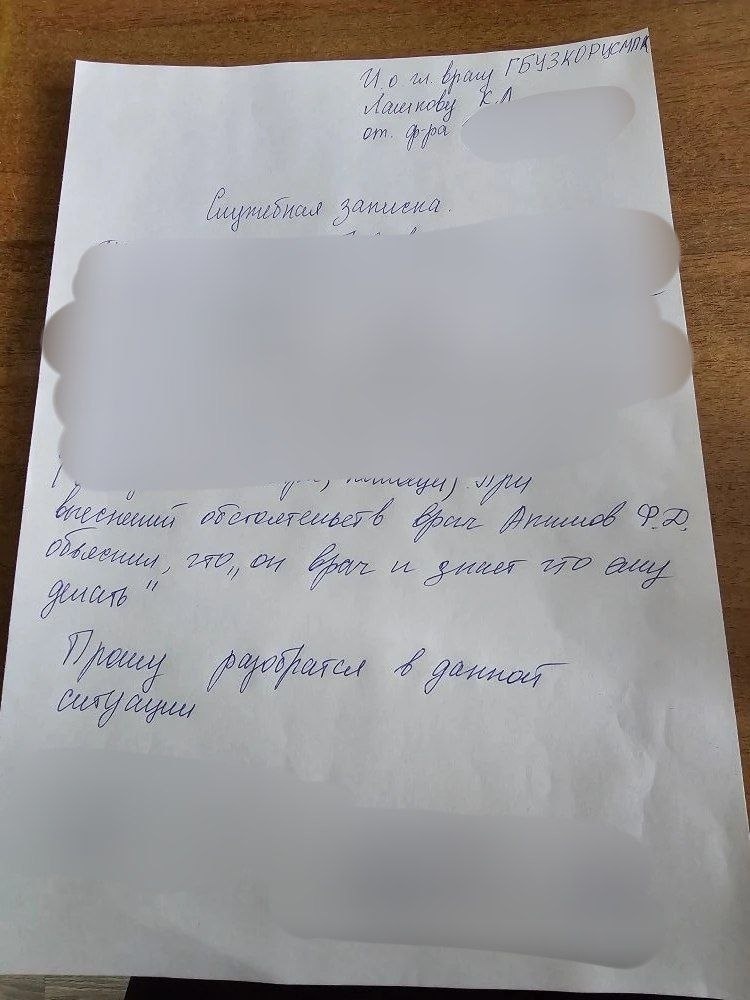 И.о гл. врачу ГБУЗКОРЦСМПК
Лашкову К.А
от ф-ра
Служебная записка.
При
выеснений обстоятельств врач Акимов Ф.Д.
объяснил, что „он врач и знает что ему
делать"
Прошу разобратся в данной
ситуации